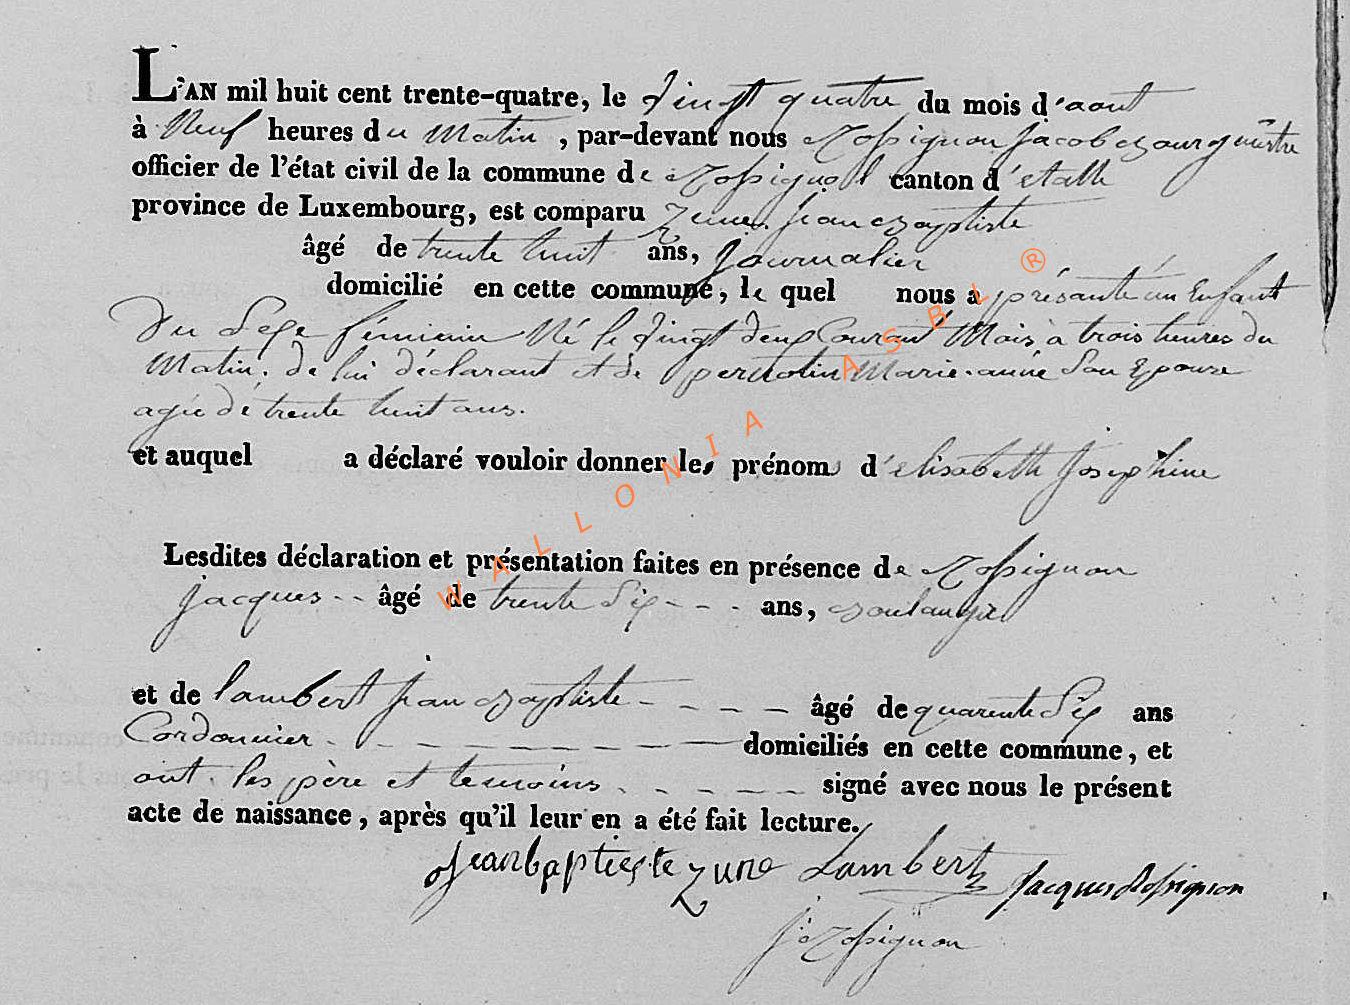 L'AN mil huit cent trente-quatre, le vingt quatre du mois d'aout
à Neuf heures du Matin, par-devant nous Rossignon Jacob Bourguistre
officier de l'état civil de la commune de Rossignol canton d'etalle
province de Luxembourg, est comparu Zune Jean Baptiste
âgé de trente huit ans, journalier
domicilié en cette commune, le quel nous a présanté un Enfant
Du Sexe féminin Né le vingt deux Courant Mois à trois heures du
Matin. de lui déclarant et de Marie-anne Son Epouse
agée de trente huit ans.
et auquel a déclaré vouloir donner les prénoms d'elisabeth Josephine
Lesdites déclaration et présentation faites en présence de Rossignon
jacques -- âgé de trente Six --- ans, boulanger
et de lambert jean Baptiste ---- âgé de quarente Six ans
Cordonnier. -------- domiciliés en cette commune, et
ont, les père et temoins ----- signé avec nous le présent
acte de naissance, après qu'il leur en a été fait lecture.
Jean baptieste zune Lambert Jacques Rossignon
J Rossignon
WALLONIA ASBL ®